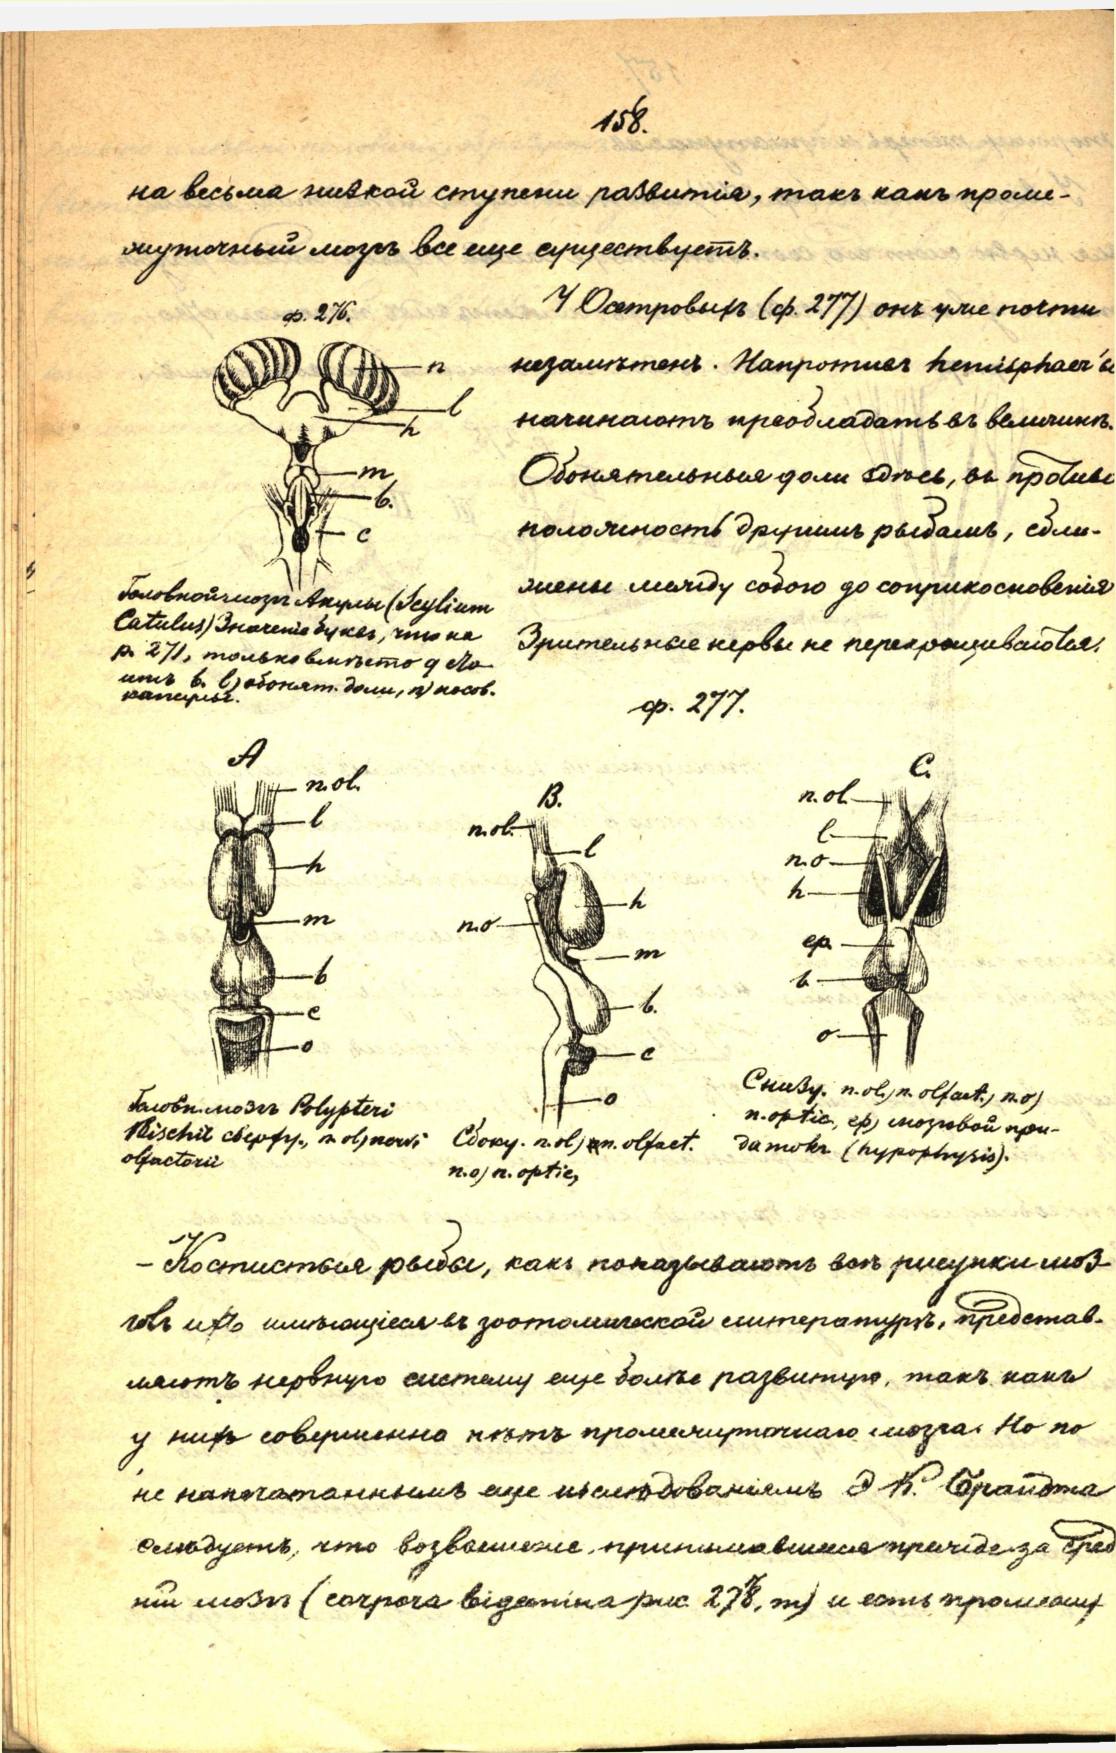 158.
на весьма низкой ступени развитія, такъ какъ проме-
жуточный мозгъ все еще существуетъ.
ф. 276.
n
l
h
m
b.
c
Головной мозгъ Акулы (Scylium
Catulus) Значеніе буквъ, что на
р. 271, только вмѣсто q сто
итъ b. l) обонят. доли, n) носов.
капсулы.
У Осетровыхъ (ф. 277) онъ уже почти
незамѣтенъ. Напротивъ hemisphaer
начинаютъ преобладать въ величинѣ.
Обонятельныя доли здѣсь, въ противо
положность другимъ рыбамъ, сбли-
жены между собою до соприкосновенія
Зрительные нервы не перекрещиваются.
ф. 277.
A
n.ol.
l
h
m
b
c
o
Головн. мозгъ Polypteri
Bischit сверху., n.ol) nervi
olfactorii
B.
n.ol.
l
h
n.o
m
b.
c
o
Сбоку. n.ol) n. olfact.
n.o) n. optic,
C.
n.ol.
l
n.o
h
ep.
b
o
Снизу. n.ol.) n. olfact., n.o)
n. optic., ep) мозговой при-
датокъ (hypophysis).
– Костистыя рыбы, какъ показываютъ всѣ рисунки моз-
говъ ихъ имѣющіеся въ зоотомической литературѣ, представ-
ляютъ нервную систему еще болѣе развитую, такъ какъ
у нихъ совершенно нѣтъ промежуточнаго мозга. Но по
не напечатаннымъ еще изслѣдованіямъ Э К. Брандта
слѣдуетъ, что возвышеніе, принимавшееся прежде за сред
ній мозгъ (corpora bigemina рис. 278, m) и есть промежу